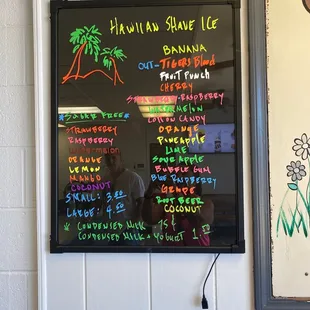 HAWIIAN SHAVE ICE
BANANA
OUT- TIGERS Blood
FRUIT PUNCH
CHERRY
STRAWBERRY-RASPBERRY
WATERMELON
COTTON CANDY
ORANGE
PINEAPPLE
LIME
SOUR APPLE
BUBBLE GUM
BLUE RASPBERRY
GRAPE
ROOT BEER
COCONUT
*SUGAR FREE*
STRAWBERRY
RASPBERRY
WATERMELON
ORANGE
LEMON
MANGO
COCONUT
SMALL: 3.00
LARGE: 4.00
* CONDENSED MILK 75¢
CONDENSED MILK + YOGURT 1.